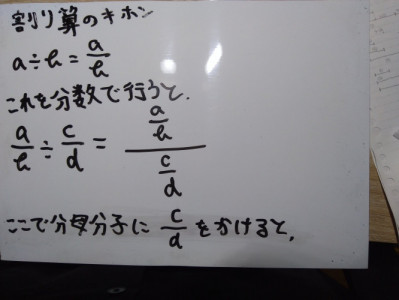 割り算のキホン
a÷b = a/b
これを分数で行うと、
a/b ÷ c/d = (a/b)/(c/d)
ここで分母分子に c/d をかけると、